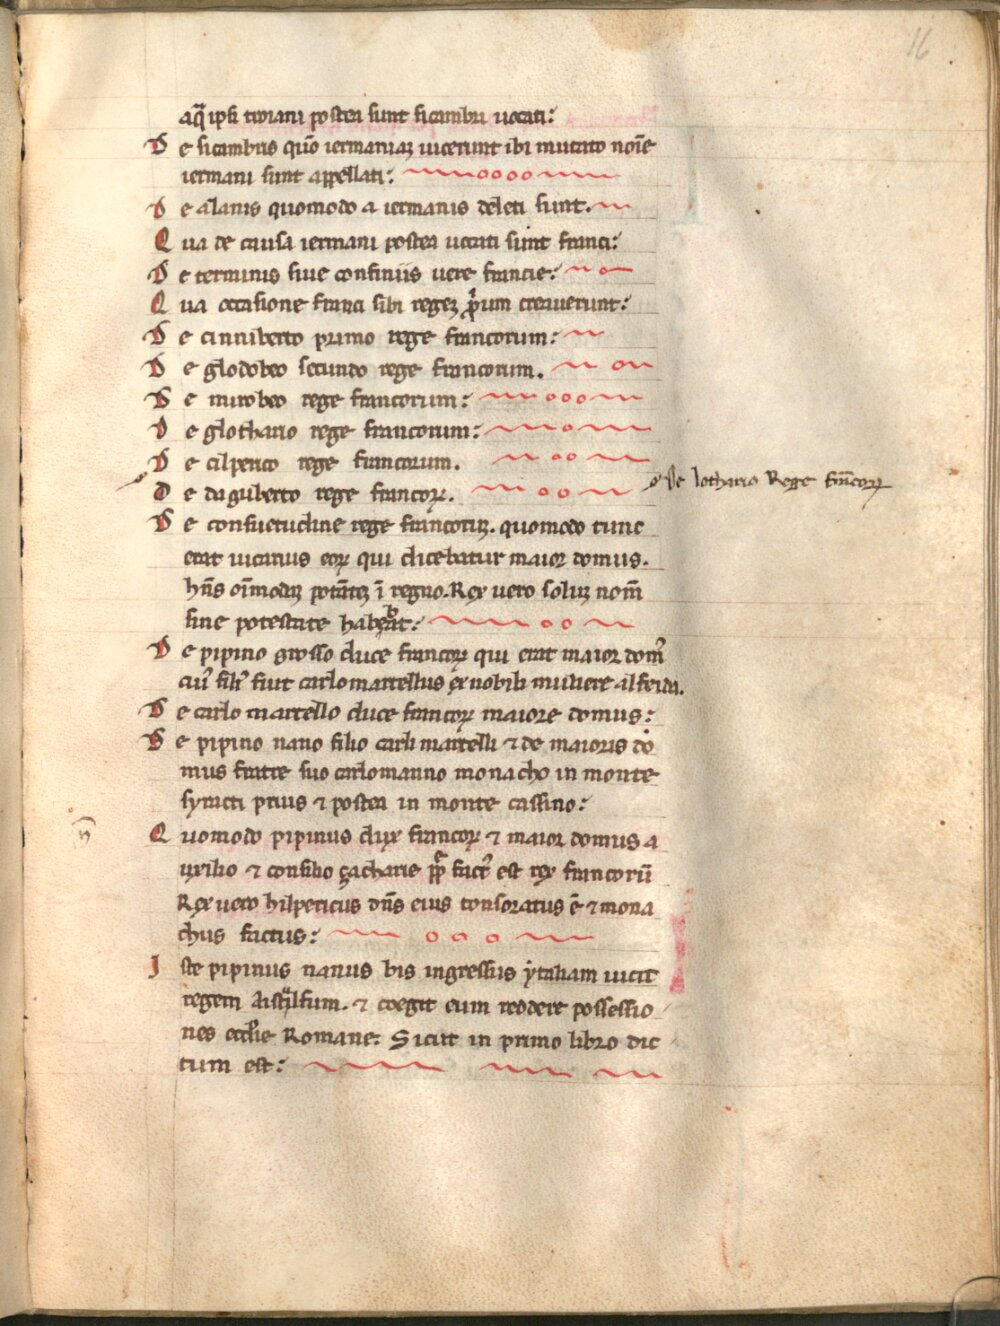 16
aq̃ ipsi troiani postea sunt sicambri uocati:
De sicambris quō iermaniaꝫ uicerunt ibi mutato noīe
iermani sunt appellati:
De alanis quomodo a iermanis deleti sunt.
Qua de causa iermani postea uocati sunt franci:
De terminis siue confiniis uere francie:
Qua occasione franci sibi regeꝫ pͥmum creauerunt:
De cinniberto primo rege francorum:
De glodobeo secundo rege francorum.
De mirobeo rege francorum:
De glothario rege francorum:
De cilperico rege francorum.
De lothario Rege frācoꝝ
De daguberto rege francoꝝ.
De consuetudine rege francoruꝫ. quomodo tunc
erat uicarius eoꝝ qui dicebatur maior domus.
hn̄s oīmodaꝫ potātēꝫ ī regno. Rex uero soluꝫ nom̄
sine potestate habebat:
De pipino grosso duce francoꝝ qui erat maior domꝰ
cuiꝰ filiꝰ fuit carlomartellus ex nobili muliere alfeida.
De carlo martello duce francoꝝ maiore domus:
De pipino nano filio carli martelli ⁊ de maioris do
mus fratre suo carlomanno monacho in monte
syracti prius ⁊ postea in monte cassino:
Quomodo pipinus dux francoꝝ ⁊ maior domus a
uxilio ⁊ consilio çacharie pp̄ factꝰ est rex francorū
Rex uero hilpericus dn̄s eius tonsoratus ē ⁊ mona
chus factus:
Iste pipinus nanus bis ingressus ytaliam uicit
regem Aistulfum. ⁊ coegit eum reddere possessio
nes eccl̄ie Romane: Sicut in primo libro dic
tum est: